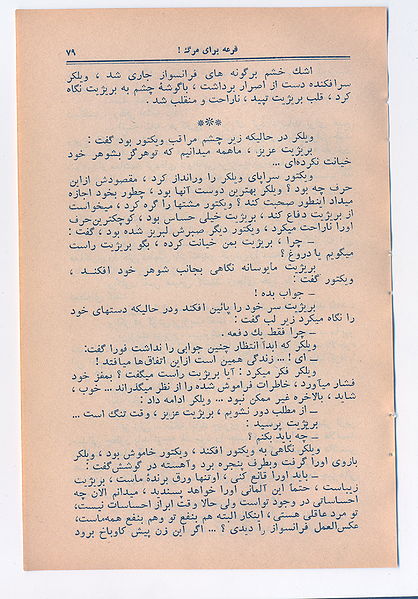 قرعه برای مرگ !
۷۹
اشك خشم برگونه های فرانسواز جاری شد ، ویلکر
سرافکنده دست از اصرار برداشت ، باگوشهٔ چشم به بریژیت نگاه
کرد ، قلب بریژیت تپید ، ناراحت و منقلب شد .
***
ویلکر در حالیکه زیر چشم مراقب ویکتور بود گفت :
بریژیت عزیز ، ماهمه میدانیم که توهرگز بشوهر خود
خیانت نکرده‌ای ...
ویکتور سراپای ویلکر را ورانداز کرد ، مقصودش ازاین
حرف چه بود ؟ ویلکر بهترین دوست آنها بود ، چطور بخود اجازه
میداد اینطور صحبت کند ؟ ویکتور مشتها را گره کرد ، میخواست
از بریژیت دفاع کند ، بریژیت خیلی حساس بود ، کوچکترین‌حرف
اورا ناراحت میکرد ، ویکتور دیگر صبرش لبریز شده بود ، گفت :
ــ چرا ، بریژیت بمن خیانت کرده ، بگو بریژیت راست
میگویم یا دروغ ؟
بریژیت مایوسانه نگاهی بجانب شوهر خود افکنــد ،
ویکتور گفت :
ــ جواب بده !
بریژیت سر خود را پائین افکند ودر حالیکه دستهای خود
را نگاه میکرد زیر لب گفت :
ــ چرا فقط یك دفعه .
ویلکر که ابدا انتظار چنین جوابی را نداشت فورا گفت:
ــ ای ! ... زندگی همین است ازاین اتفاق‌ها میافتد !
ویلکر فکر میکرد : آیا بریژیت راست میگفت ؟ بمغز خود
فشار میآورد ، خاطرات فراموش شده را از نظر میگذراند ... خوب ،
شاید ، بالاخره غیر ممکن نبود ... ویلکر ادامه داد :
ــ از مطلب دور نشویم ، بریژیت عزیز ، وقت تنگ است ...
بریژیت پرسید :
ــ چه باید بکنم ؟
ویلکر نگاهی به ویکتور افکند ، ویکتور خاموش بود ، ویلکر
بازوی اورا گرفت وبطرف پنجره برد وآهسته در گوشش‌گفت :
ــ باید اورا قانع کنی ، اوتنها ورق برندهٔ ماست ، بریژیت
زیباست ، حتماً این آلمانی اورا خواهد پسندید ، میدانم الان چه
احساساتی در وجود تواست ولی حالا وقت ابراز احساسات نیست،
تو مرد عاقلی هستی ، اینکار البته هم بنفع تو وهم بنفع همه‌ماست،
عکس‌العمل فرانسواز را دیدی ؟ ... اگر این زن پیش کاوباخ برود